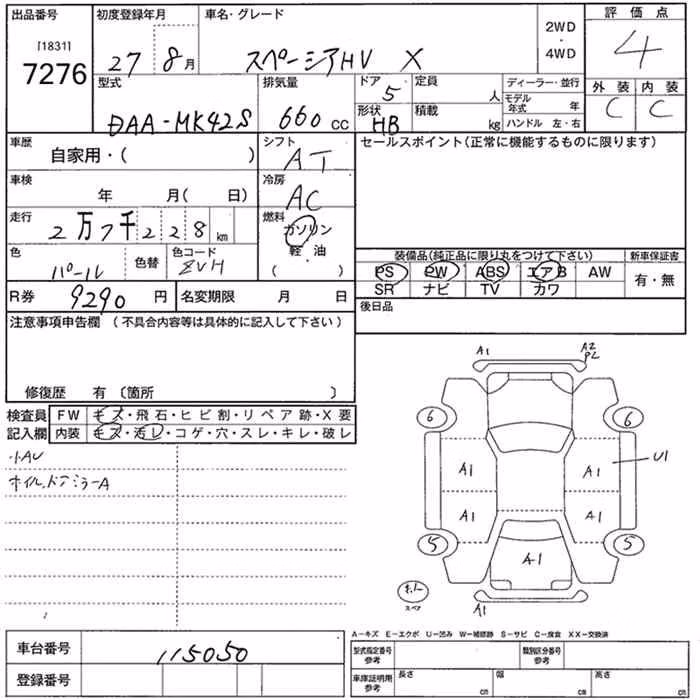 出品番号 初度登録年月 車名・グレード 2WD ・ 4WD 評価点
[1831]
7276 27 8月 スペーシアHV X 4
型式 排気量 ドア 5 定員 人 ディーラー・並行 外装 内装
DAA-MK42S 660 CC 形状 HB 積載 kg モデル年式 年 C C
ハンドル 左・右
車歴 自家用・( ) シフト AT セールスポイント(正常に機能するものに限ります)
車検 年 月( 日) 冷房 AC
走行 2万7千228km 燃料 ガソリン 軽油 ( ・ )
色 パール 色替 色コード ZVH
装備品(純正品に限り丸をつけて下さい) 新車保証書
PS PW ABS エアB AW 有・無
SR ナビ TV カワ
R券 9290 円 名変期限 月 日 後日品
注意事項申告欄 (不具合内容等は具体的に記入して下さい)
修復歴 有 〔箇所 〕
検査員 FW キズ・飛石・ヒビ割・リペア跡・X要
記入欄 内装 キズ・汚レ・コゲ・穴・スレ・キレ・破レ
小AU
ホイル、ドアミラーA
A1 A2 PL
6 6
A1 A1 U1
A1 A1
5 5
A1
スペア A1
A-キズ E-エクボ U-凹み W-補修跡 S-サビ C-腐食 XX-交換済
車台番号 115050
型式指定番号 参考 類別区分番号 参考
登録番号
車庫証明用 参考 長さ cm 幅 cm 高さ cm